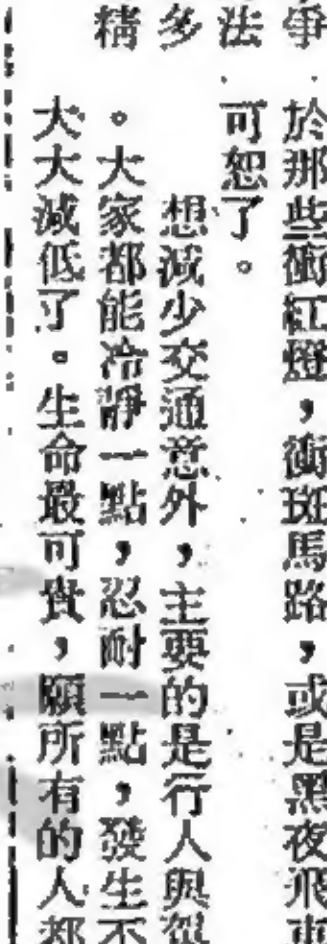 爭於那些衝紅燈，衝斑馬路，或是黑夜飛車
法可恕了。
多想減少交通意外，主要的是行人與駕
精。大家都能冷靜一點，忍耐一點，發生不
大大減低了。生命最可貴，願所有的人都